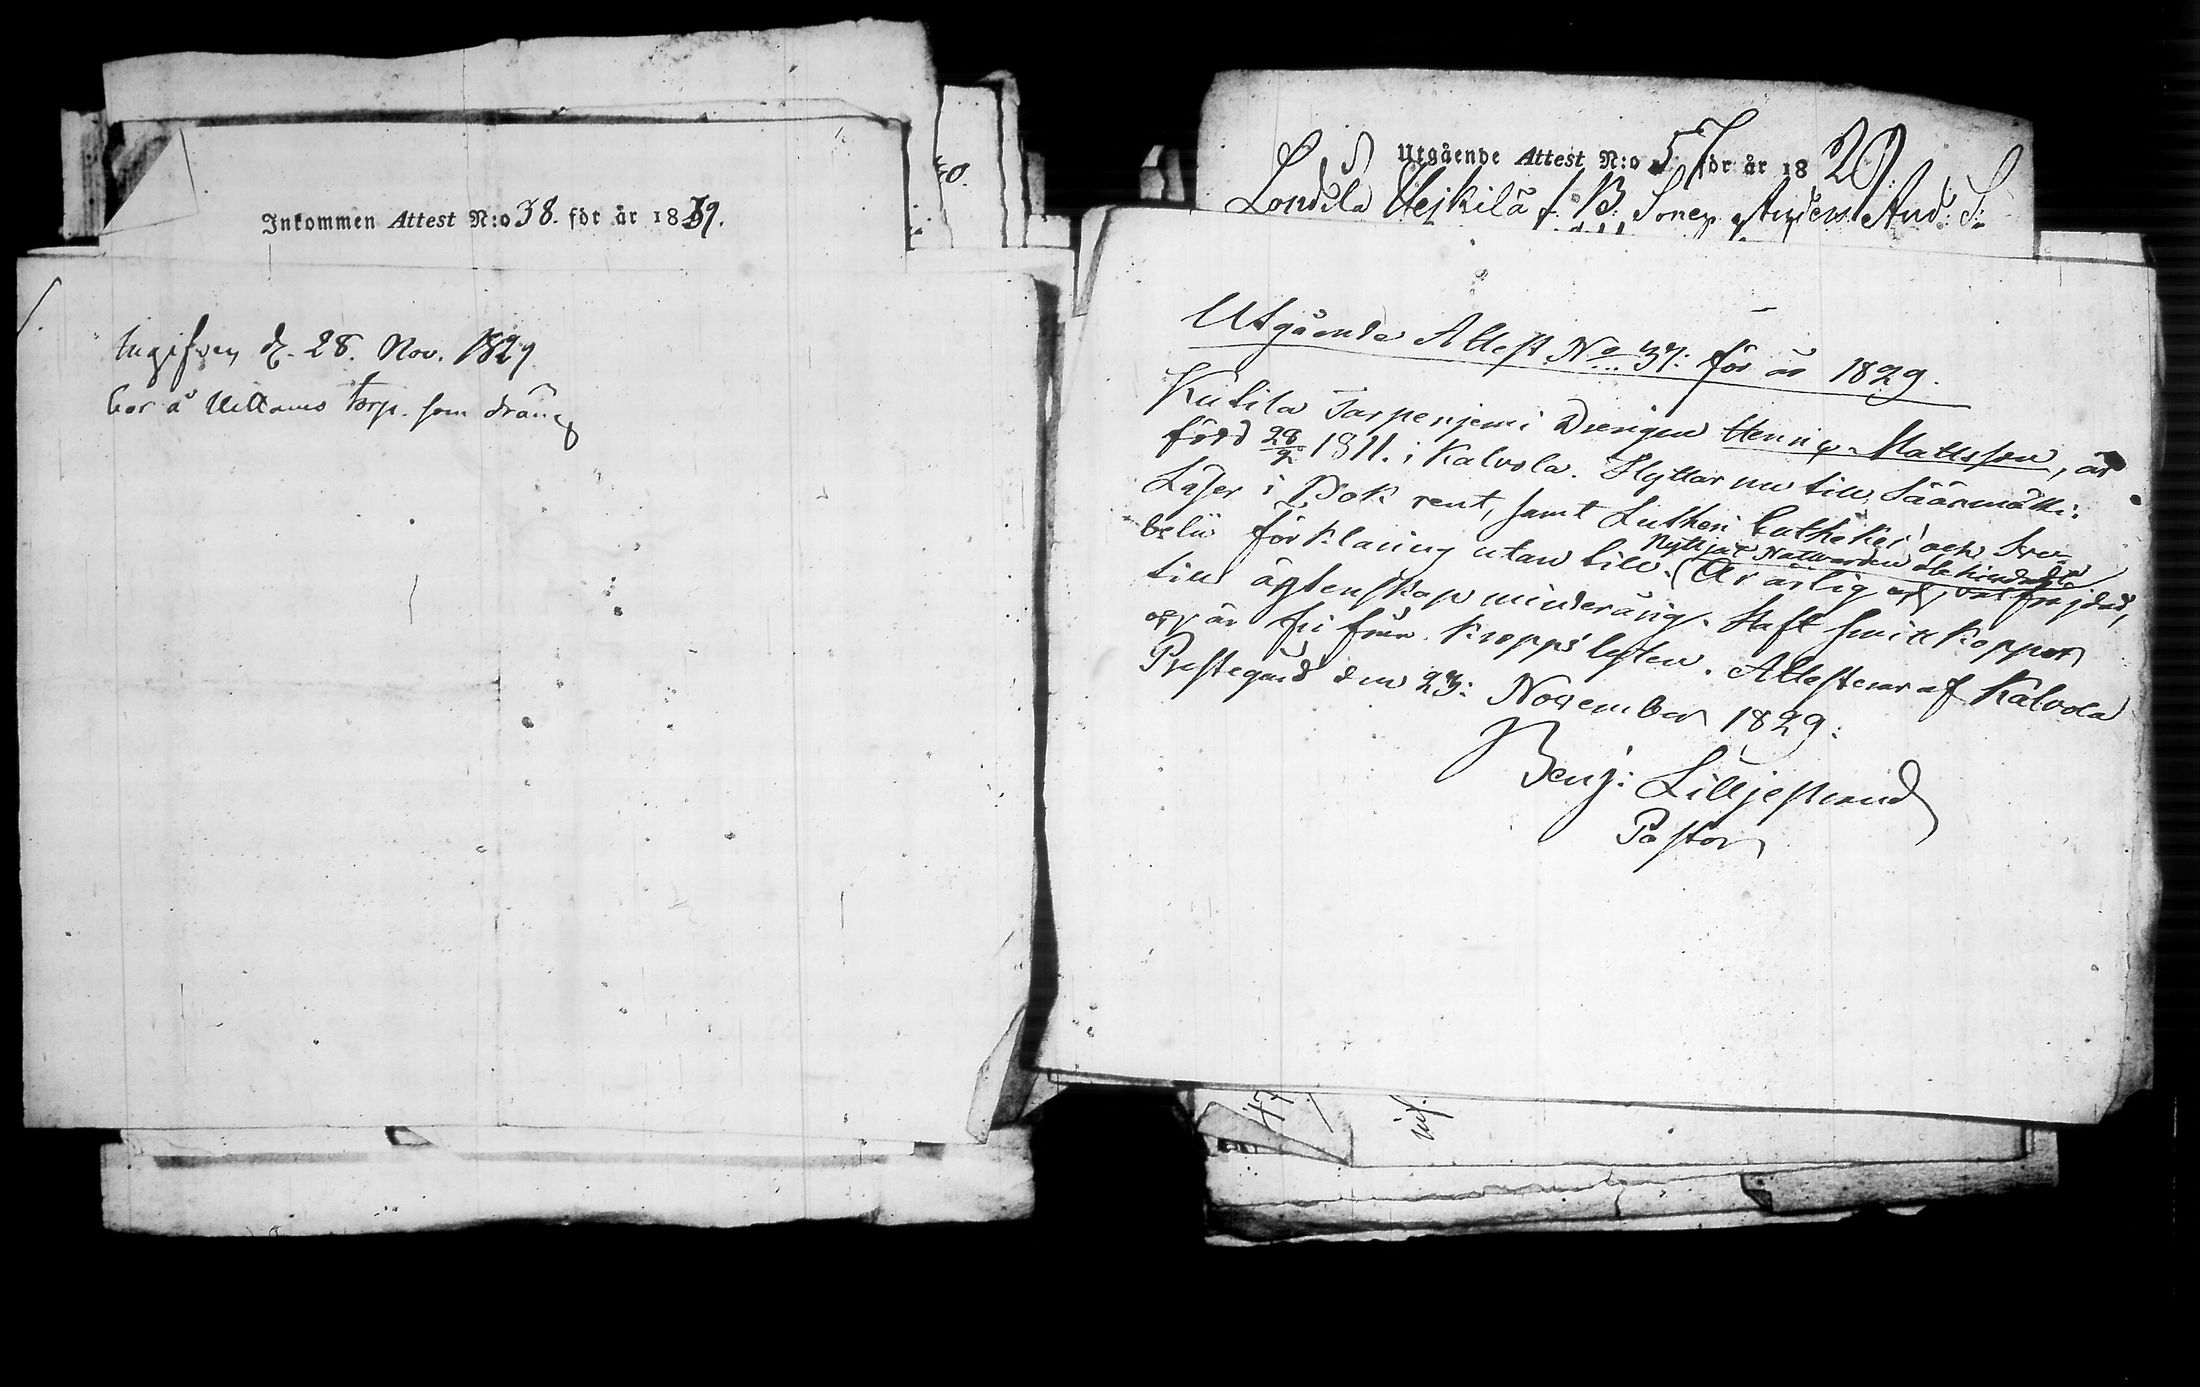 Inkommen Attest N:o 38. för år 1829.
Ingifven d. 28. Nov. 1829
bor å Uittamo torp. som dräng
40.
Utgående Attest N:o 57 för år 1829.
Londila Hejkilä f. B. Sonen Anders And: S:
Utgående Attest No 37: för år 1829.
Kutila Tarpenjemi Drengen Henric Mattsson, är
född 28/2 1811. i Kalvola. Flyttar nu till Säärmäki:
Läser i Bok rent, samt Lutheri Cathekes' och Sve-
belii förklaring utan till. (Är ärlig och väl frejdad,
Nyttjar Nattvarden
till ägtenskap minderårig. Haft smittkoppor
och är fri från kropps lyten. Attesterar af Kalvola
Prestegård den 23: November 1829:
Benj: Lilljestrand
Pastor